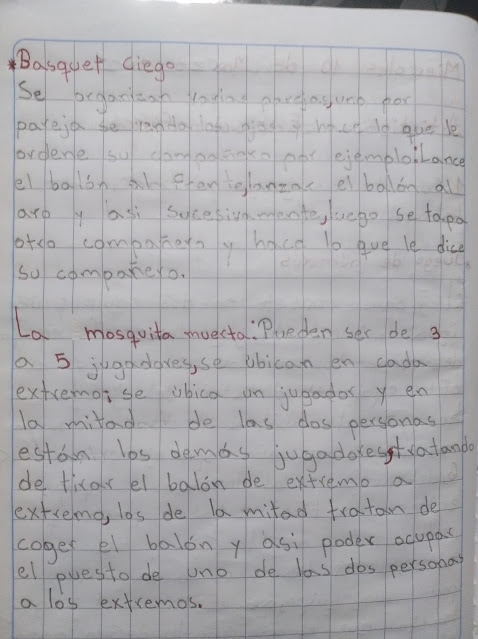 *Basquet Ciego
Se organizan varias parejas, uno por
pareja se venda los ojos y hace lo que le
ordene su compañero por ejemplo: Lance
el balón al frente, lanzar el balón al
aro y asi sucesivamente, luego se tapa
otro compañero y hace lo que le dice
su compañero.
La mosquita muerta: Pueden ser de 3
a 5 jugadores, se ubican en cada
extremo; se ubica un jugador y en
la mitad de las dos personas
están los demás jugadores, tratando
de tirar el balón de extremo a
extremo, los de la mitad tratan de
coger el balón y asi poder ocupar
el puesto de uno de las dos personas
a los extremos.